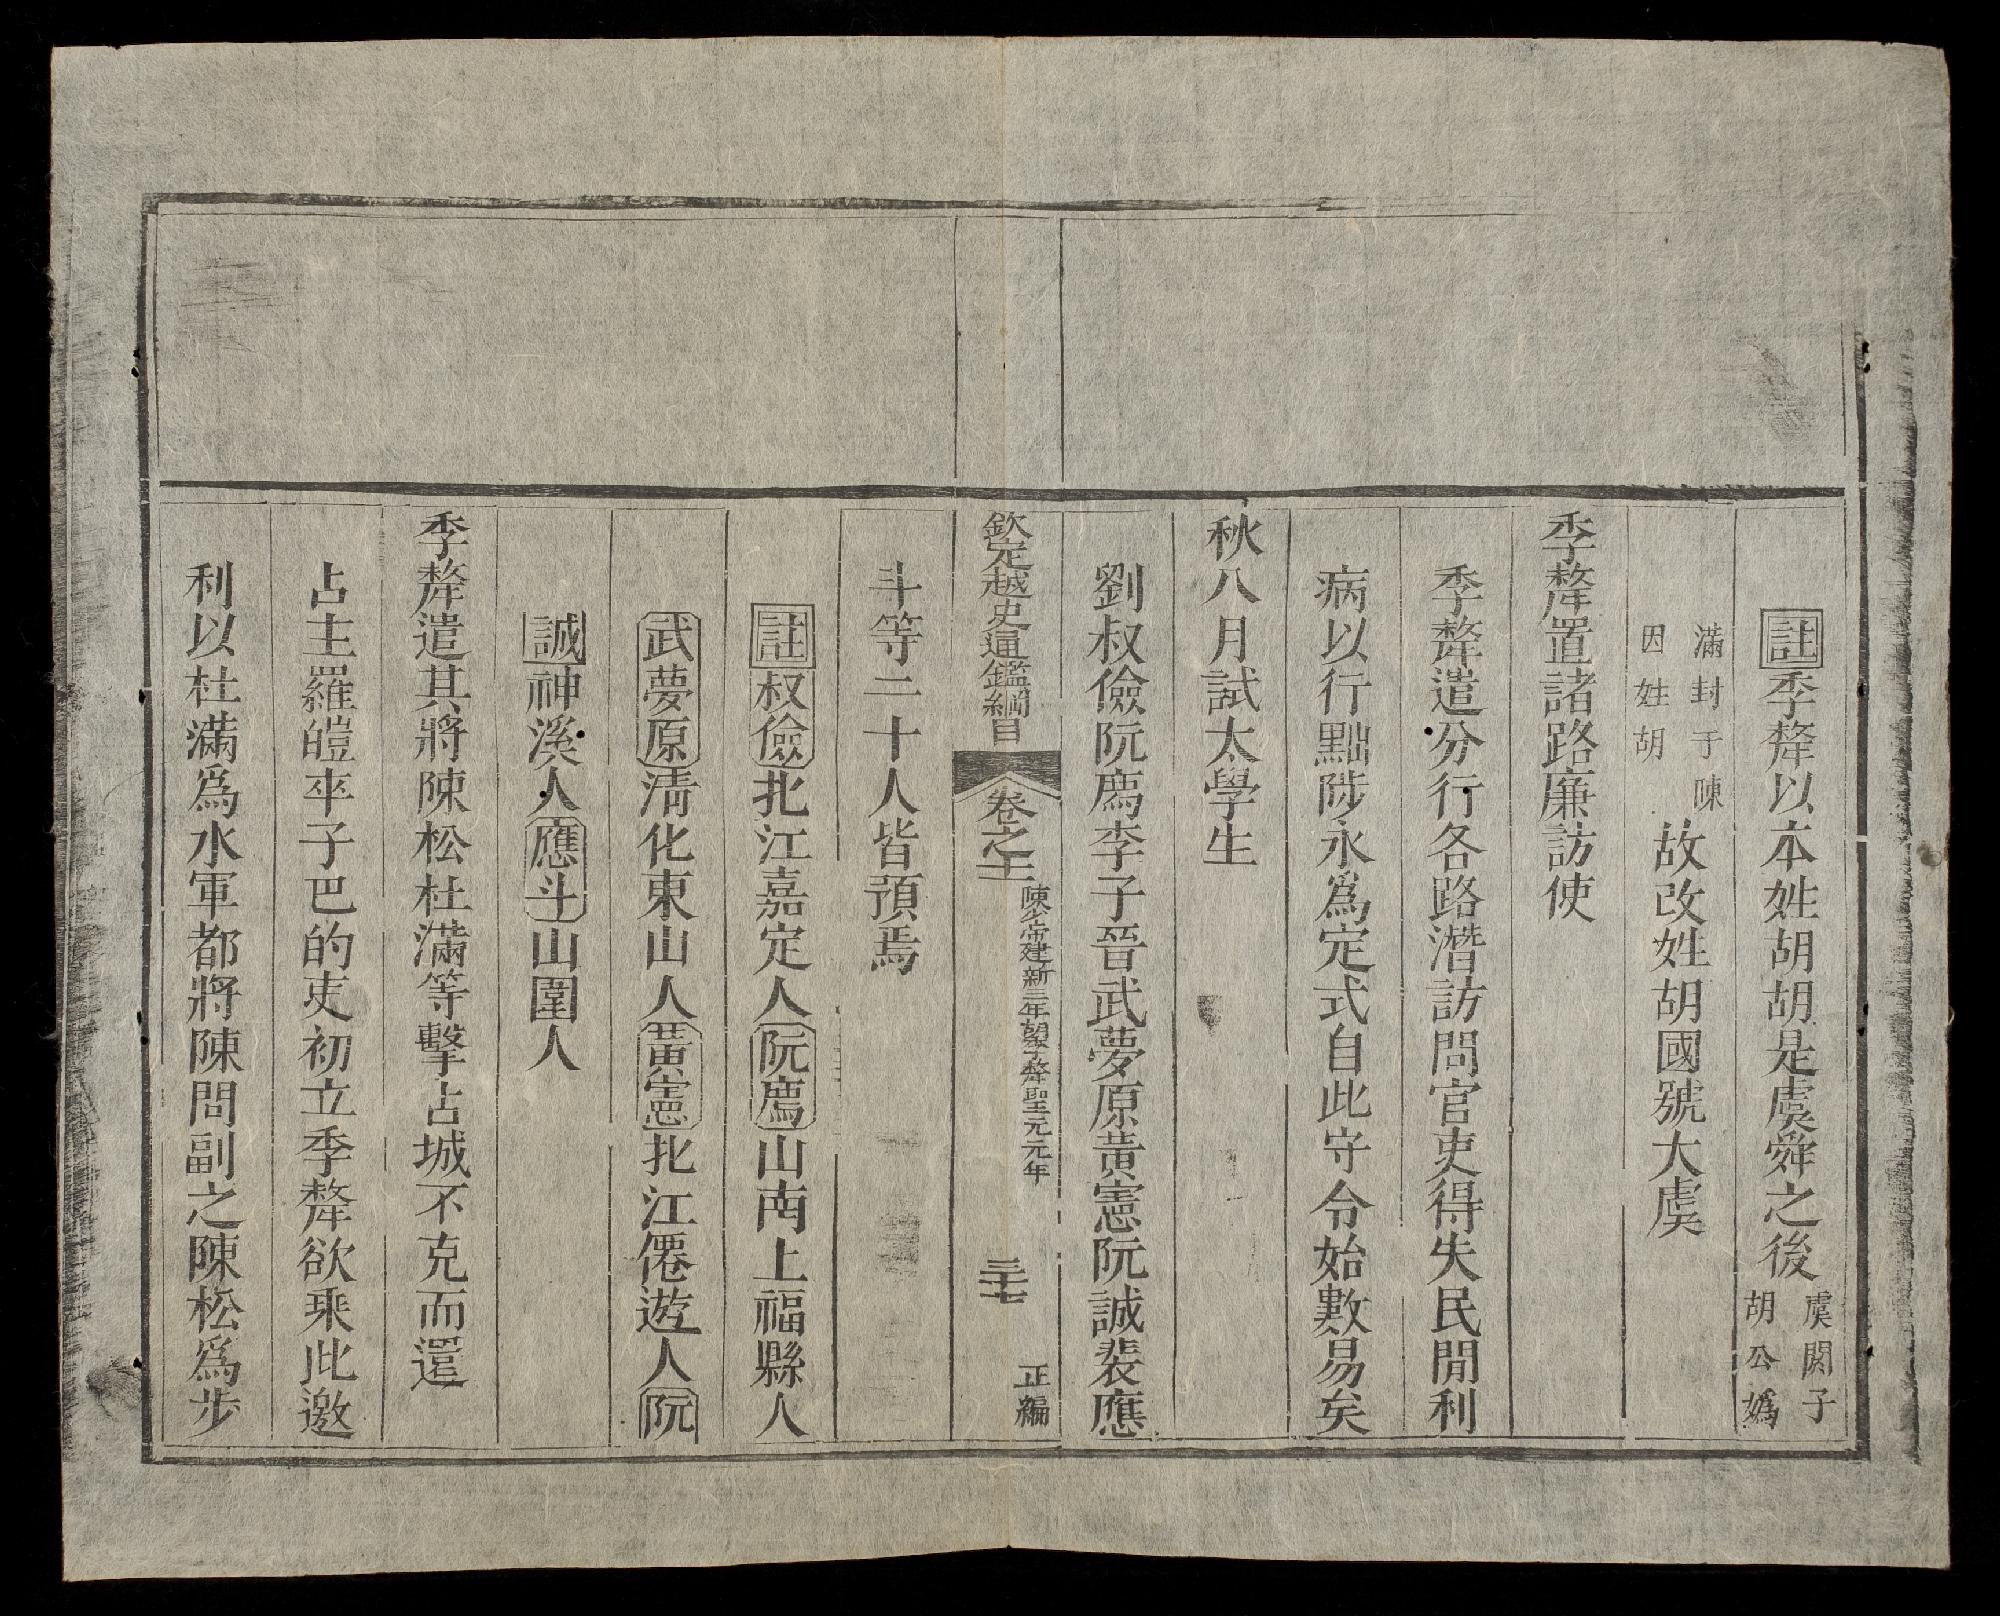 註季犛以本姓胡胡是虞舜之後虞閼子胡公媯
滿封于陳因姓胡故改姓胡國號大虞
季犛置諸路廉訪使
季犛遣分行各路潛訪問官吏得失民間利
病以行點陟永爲定式自此守令始數易矣
秋八月試太學生
劉叔儉阮廌李子晉武夢原黃憲阮誠裴應
欽定越史通鑑綱目
卷之十一
陳少帝建新三年胡季犛聖元元年
三十七
正編
斗等二十人皆預焉
註叔儉北江嘉定人阮廌山南上福縣人
武夢原清化東山人黃憲北江僊遊人阮
誠神溪人應斗山圍人
季犛遣其將陳松杜滿等擊占城不克而還
占主羅皚卒子巴的吏初立季犛欲乘此邀
利以杜滿爲水軍都將陳問副之陳松爲步